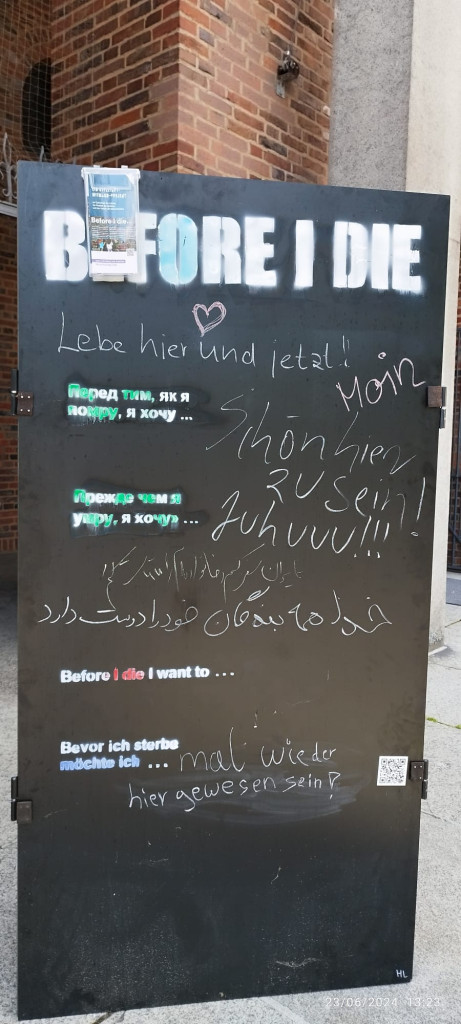 BEFORE I DIE
Before I die
Lebe hier und jetzt!!
Moin
Перед тим, як я
помру, я хочу ...
Schön hier
zu sein!
Juhuuu!!!
Прежде чем я
умру, я хочу» ...
خدا همه بندگان خود را دوست دارد
Before I die I want to ...
Bevor ich sterbe
möchte ich ... mal wieder
hier gewesen sein!
HL
23/06/2024 13:23